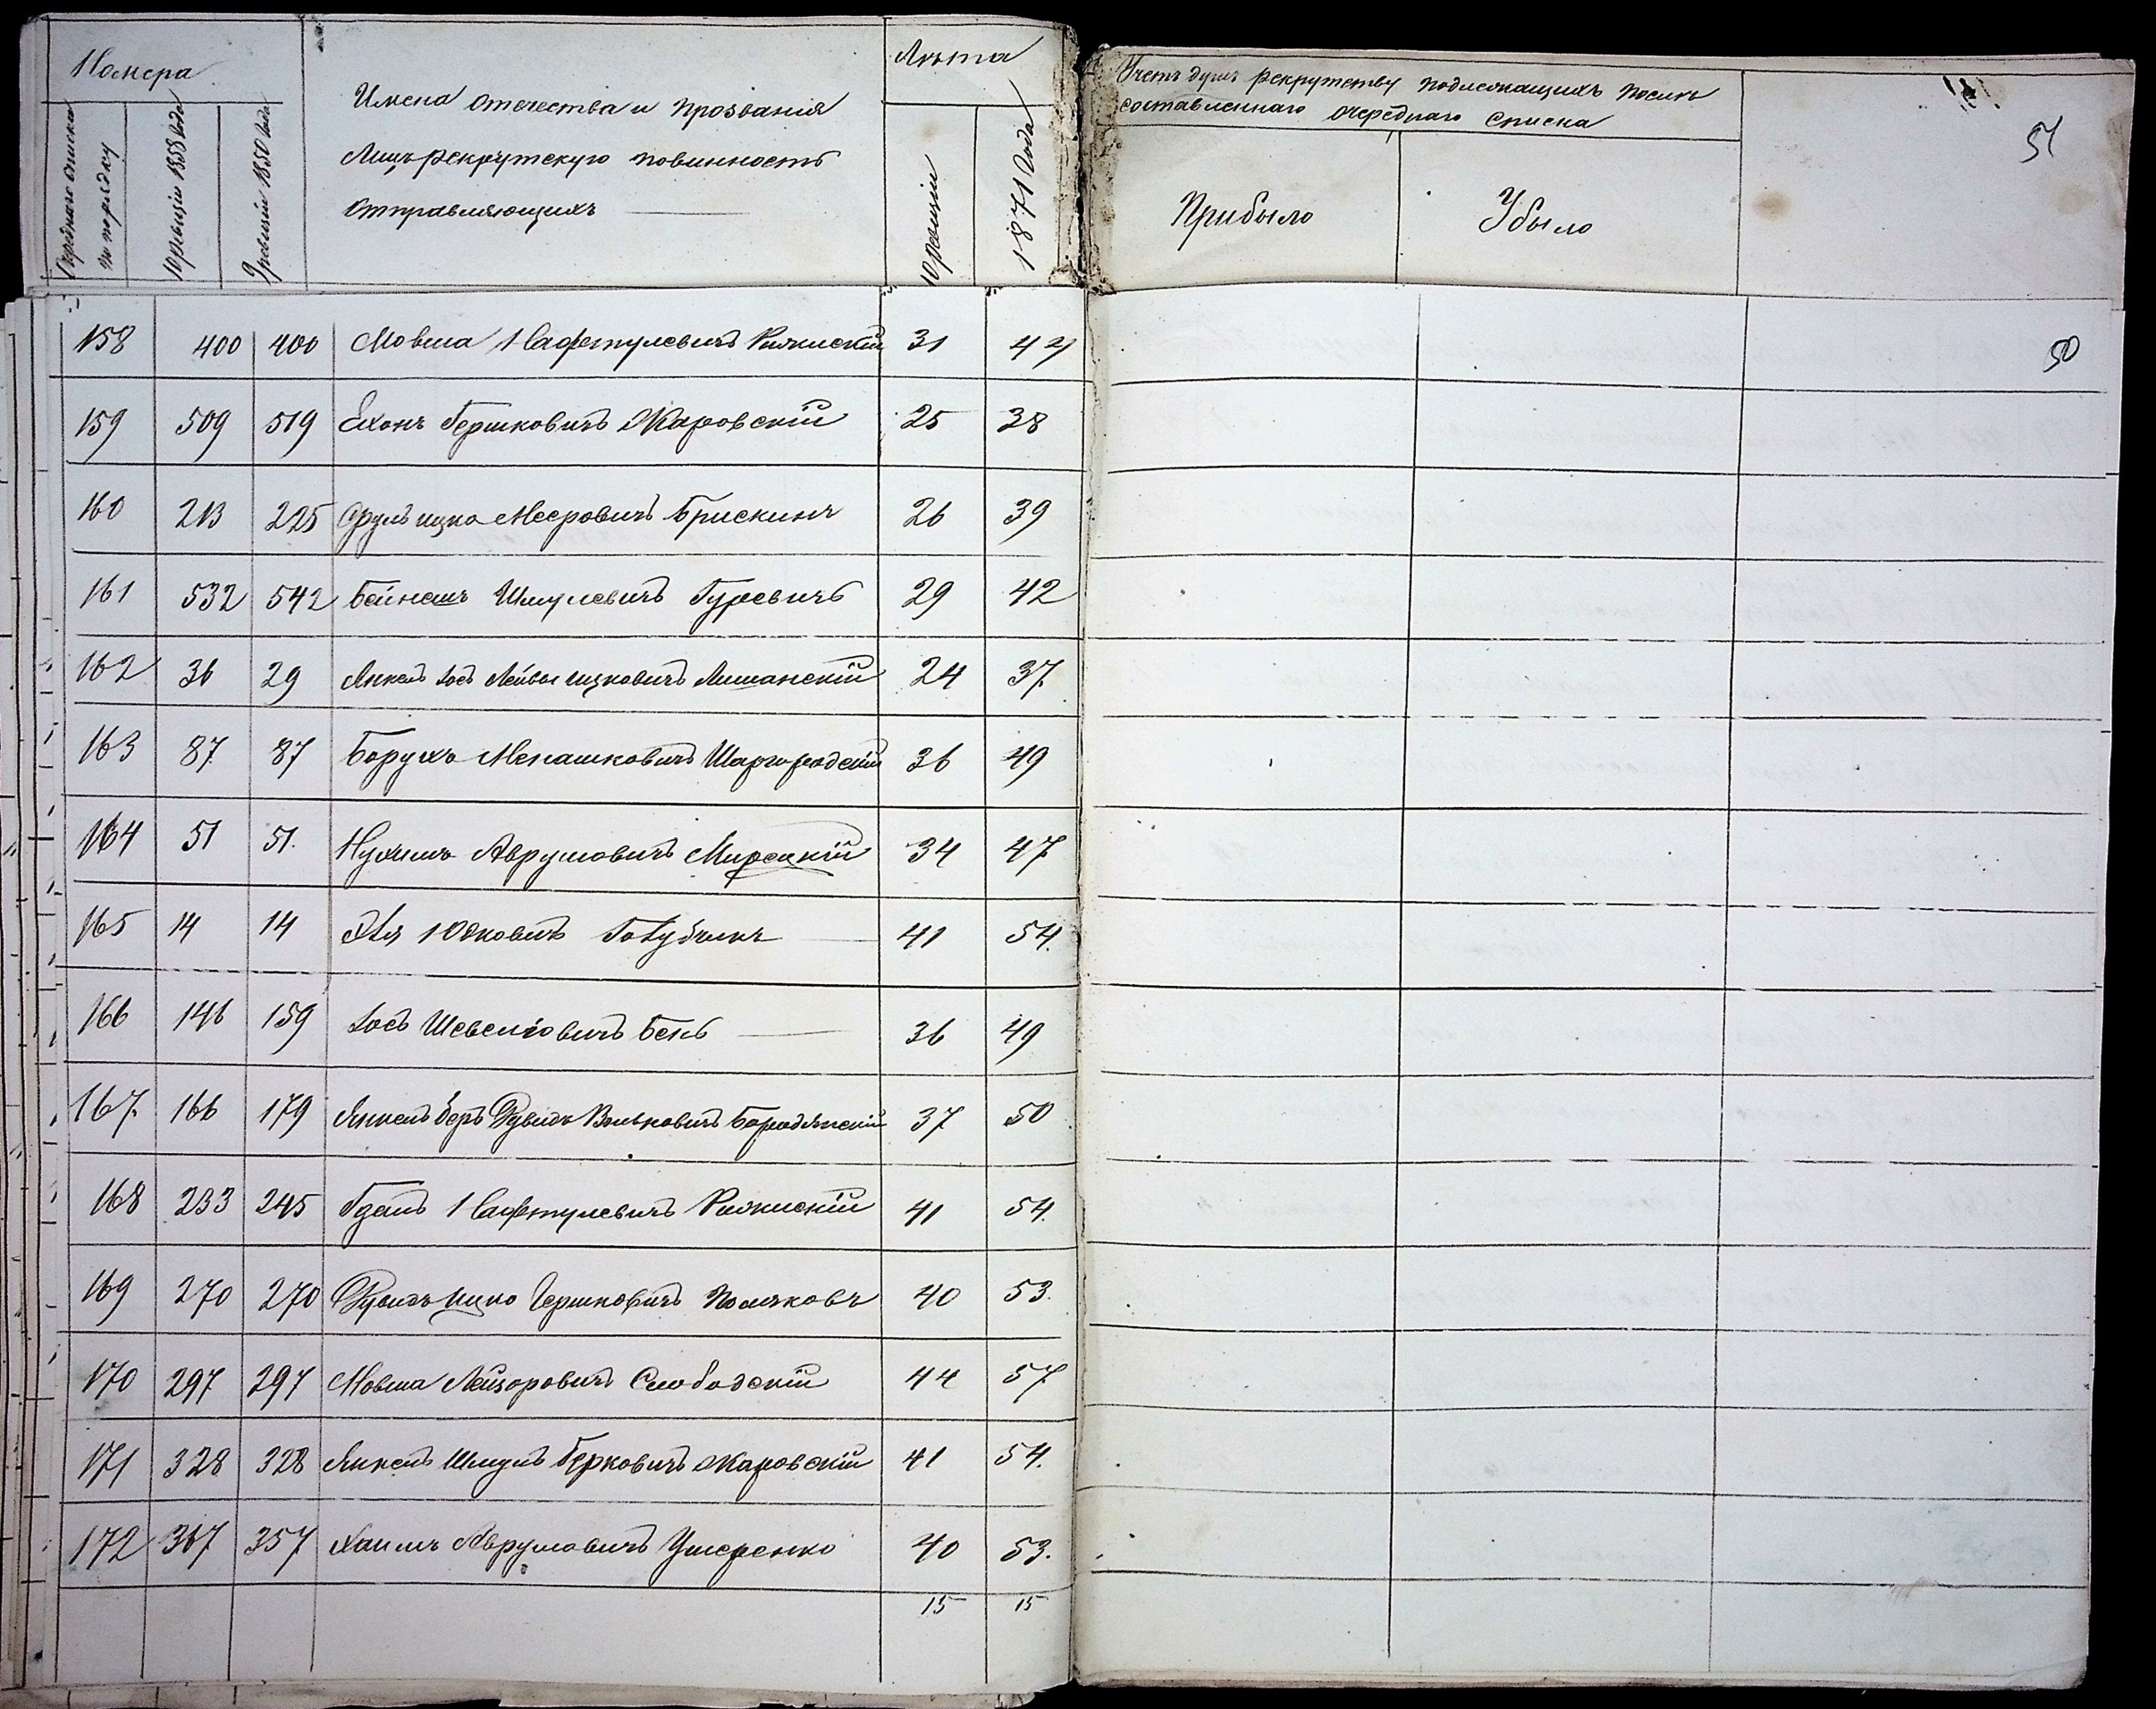 Номера
Очереднаго списка
по порядку
10 ревизіи 1858 года
9 ревизіи 1850 года
Имена отечества и прозвания
Лицъ рекрутскую повинность
отправляющихъ
Лѣта
10 ревизіи
1871 года
Учетъ душъ рекрутству подлежащихъ послѣ
составленнаго очереднаго списка
Прибыло
Убыло
51
50
158 400 400 Мовша Нафтулевичъ 31 44
159 509 519 Ехонъ Гершковичъ Жаровскій 25 38
160 213 225 Сруль ицко Мееровичъ Брискинъ 26 39
161 532 542 Бейнешъ Шмулевичъ Гуревичъ 29 42
162 36 29 Янкель Іось Лейбы ицковичъ Лишанскій 24 37
163 87 87 Борухъ Менашковичъ Шаргородскій 36 49
164 51 51. Нухимъ Аврумовичъ 34 47
165 14 14 Эля Юдковичъ Голубчикъ 41 54.
166 146 159 Іось Шевелiовичъ Бень 36 49
167. 166 179 Янкель Беръ Дувидъ Вольковичъ Бородянскій 37 50
168 233 245 Гдаль Нафтулевичъ 41 54.
169 270 270 Дувидъ ицко Гершковичъ Поляковъ 40 53.
170 297 297 Мовша Лейзоровичъ Слободскій 44 57
171 328 328 Янкель Шмуль Берковичъ Жаровскій 41 54.
172 367 357 Хаимъ Аврумовичъ Ушеренко 40 53.
15 15